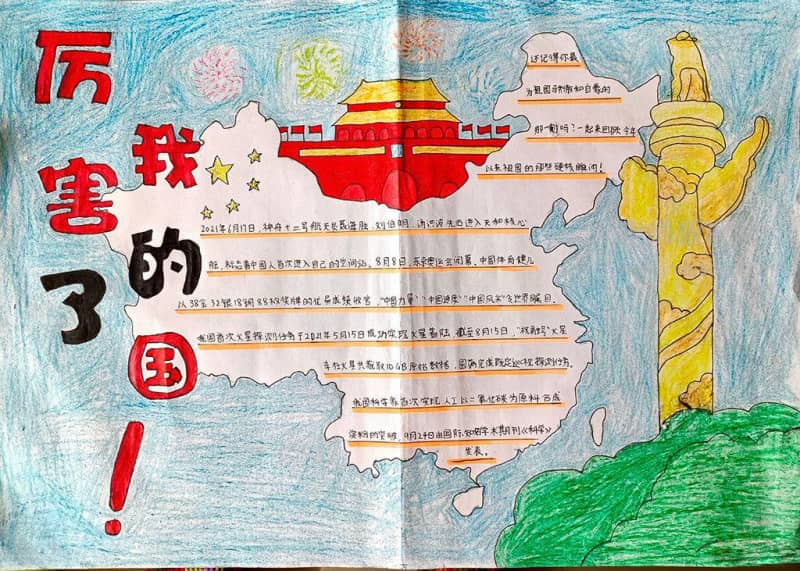 厉害了
我的国！
还记得你最
为祖国骄傲和自豪的
那一瞬吗？一起来回顾今年
以来祖国的硬核瞬间！
2021年6月17日，神舟十二号航天员聂海胜、刘伯明、汤洪波先后进入天和核心
舱，标志着中国人首次进入自己的空间站。8月8日，东京奥运会闭幕，中国体育健儿
以38金32银18铜88枚奖牌的优异成绩收官，"中国力量""中国速度""中国风采"令世界瞩目。
我国首次火星探测任务于2021年5月15日成功实现火星着陆，截至8月15日，"祝融号"火星
车在火星共获取10GB原始数据，圆满完成既定巡视探测任务。
我国科学家首次实现人工以二氧化碳为原料合成
淀粉的突破，9月24日由国际知名学术期刊《科学》
发表。